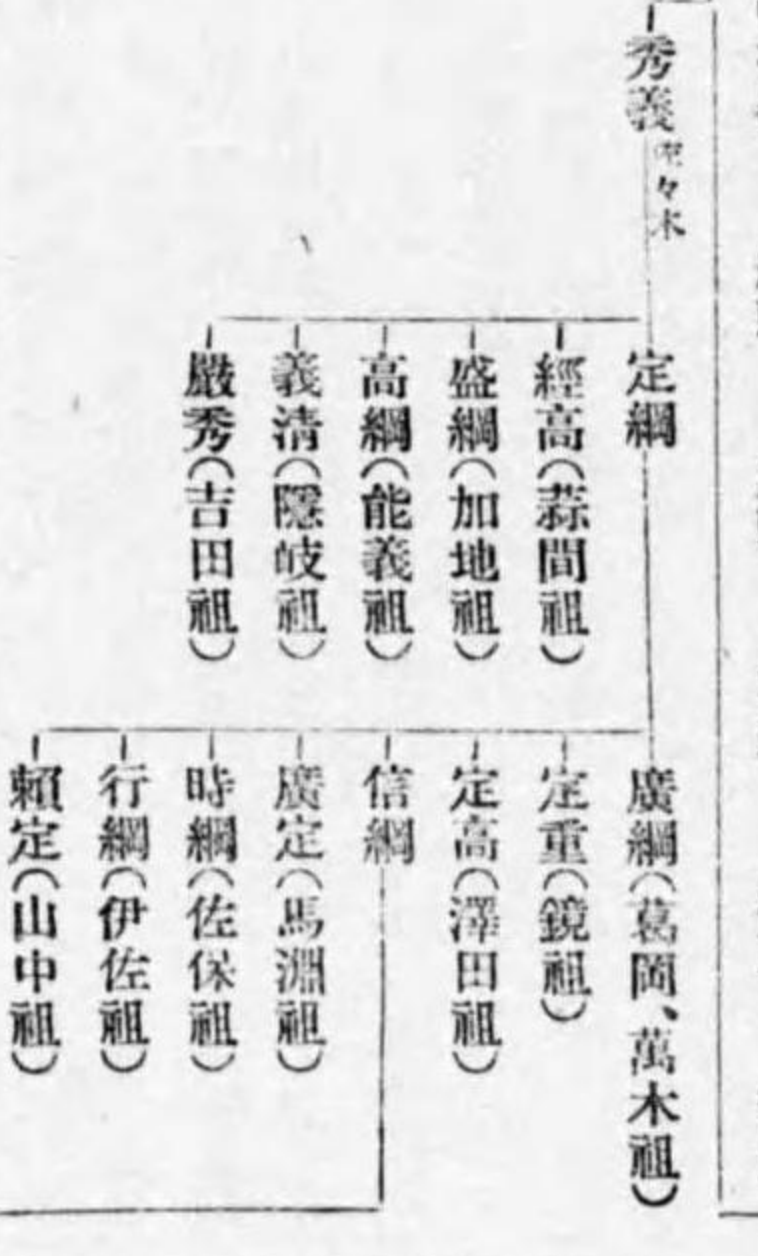 秀義 佐々木
定綱
經高(蒜間祖)
盛綱(加地祖)
高綱(能義祖)
義清(隱岐祖)
嚴秀(吉田祖)
廣綱(葛岡、萬木祖)
定重(鏡祖)
定高(澤田祖)
信綱
廣定(馬淵祖)
時綱(佐保祖)
行綱(伊佐祖)
賴定(山中祖)